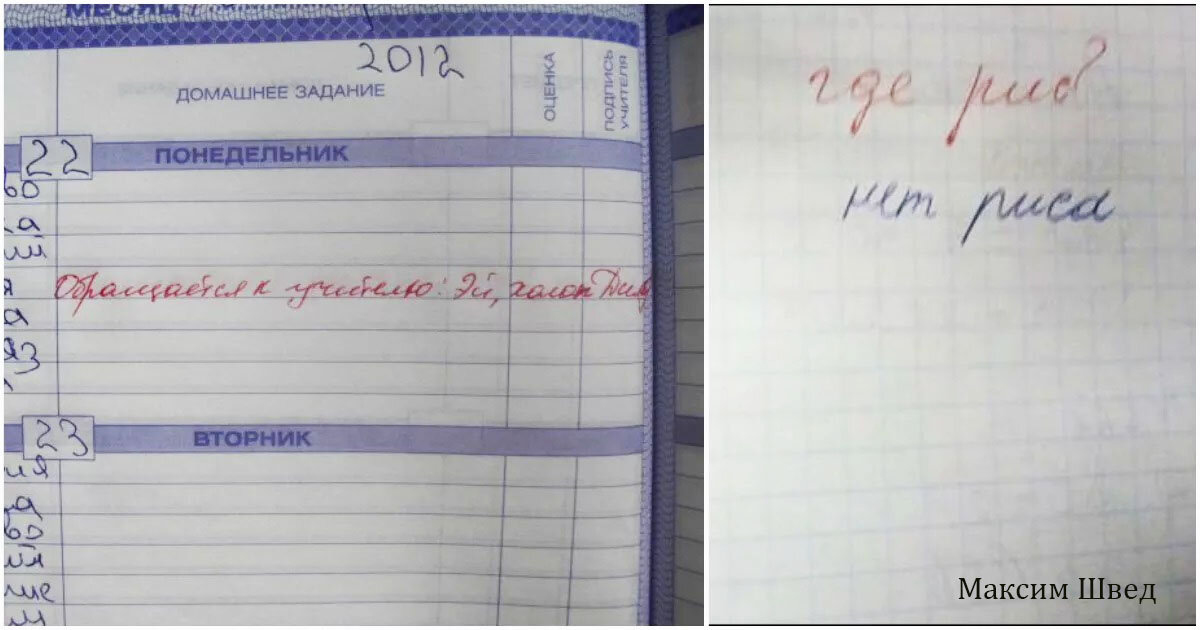 МЕСЯЦ
2012
ДОМАШНЕЕ ЗАДАНИЕ
ОЦЕНКА
ПОДПИСЬ
УЧИТЕЛЯ
22
ПОНЕДЕЛЬНИК
Обращается к учителю: Эй, холоп
23
ВТОРНИК
где рис?
нет риса
Максим Швед